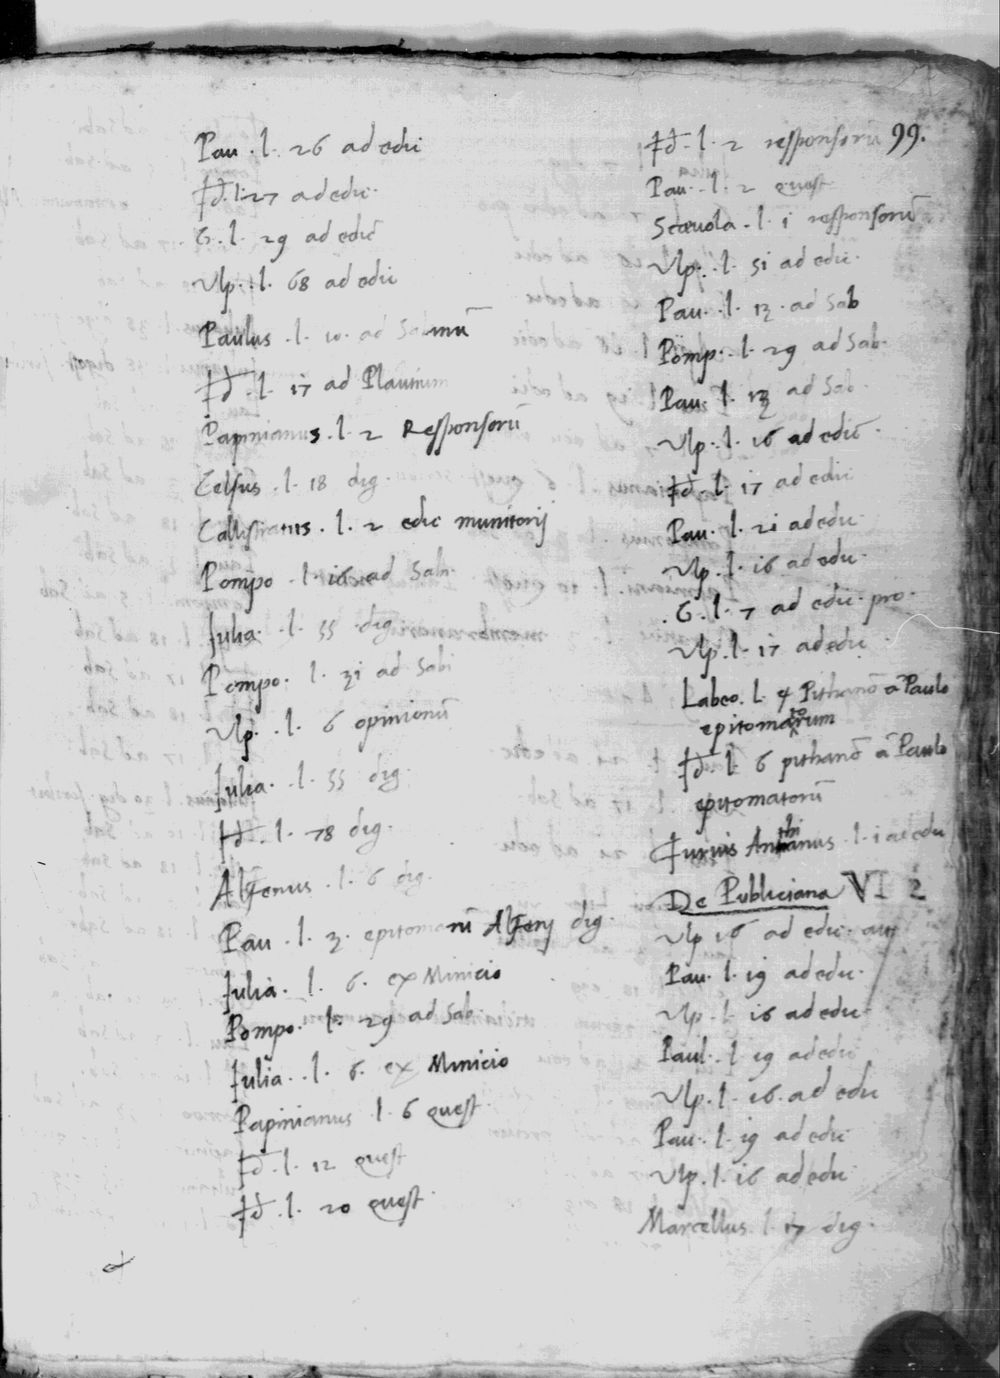 99.
Pau . l . 26 ad edic
Id . l . 27 ad edic .
G . l . 29 ad edic
Ulp . l . 68 ad edic
Paulus . l . 10 . ad Sabinū
Id . l . 17 ad Plautium
Papinianus . l . 2 Responsorū
Celsus . l . 18 dig .
Callistratus . l . 2 edic munitorij
Pompo . l . 16 ad Sabi .
Julia . l . 55 dig
Pompo . l . 31 ad Sabi
Ulp . l . 6 opinionū
Julia . l . 55 dig
Id . l . 78 dig .
Alfenus . l . 6 dig .
Pau . l . 3 . epitomarū Alfenj dig
Julia . l . 6 . ex Minicio
Pompo . l . 29 ad Sab .
Julia . l . 6 . ex Minicio
Papinianus l . 6 quest .
Id . l . 12 quest
Id . l . 20 quest .
Id . l . 2 responsorū
Pau . l . 2 quest
Scævola . l . i responsorū
Ulp . l . 51 ad edic .
Pau . l . 13 . ad Sab
Pomp . l . 29 ad Sab .
Pau . l . 13 ad Sab .
Ulp . l . 16 ad edic .
Id . l . 17 ad edic
Pau . l . 21 ad edic .
Ulp . l . 16 ad edu .
G . l . 7 ad edic . pro .
Ulp . l . 17 ad edic
Labeo . l . 4 Pithanō à Paulo
epitomatorum
Id . l . 6 pithanō à Paulo
epitomatorū
Furius Anthianus . l . i ad edu
De Publiciana VI 2
Ulp 16 ad edic .
Pau . l . 19 ad edu .
Ulp . l . 16 ad edu .
Paul . l . 19 ad edic
Ulp . l . 16 . ad edu
Pau . l . 19 ad edic
Ulp . l . 16 ad edic .
Marcellus . l . 17 dig .